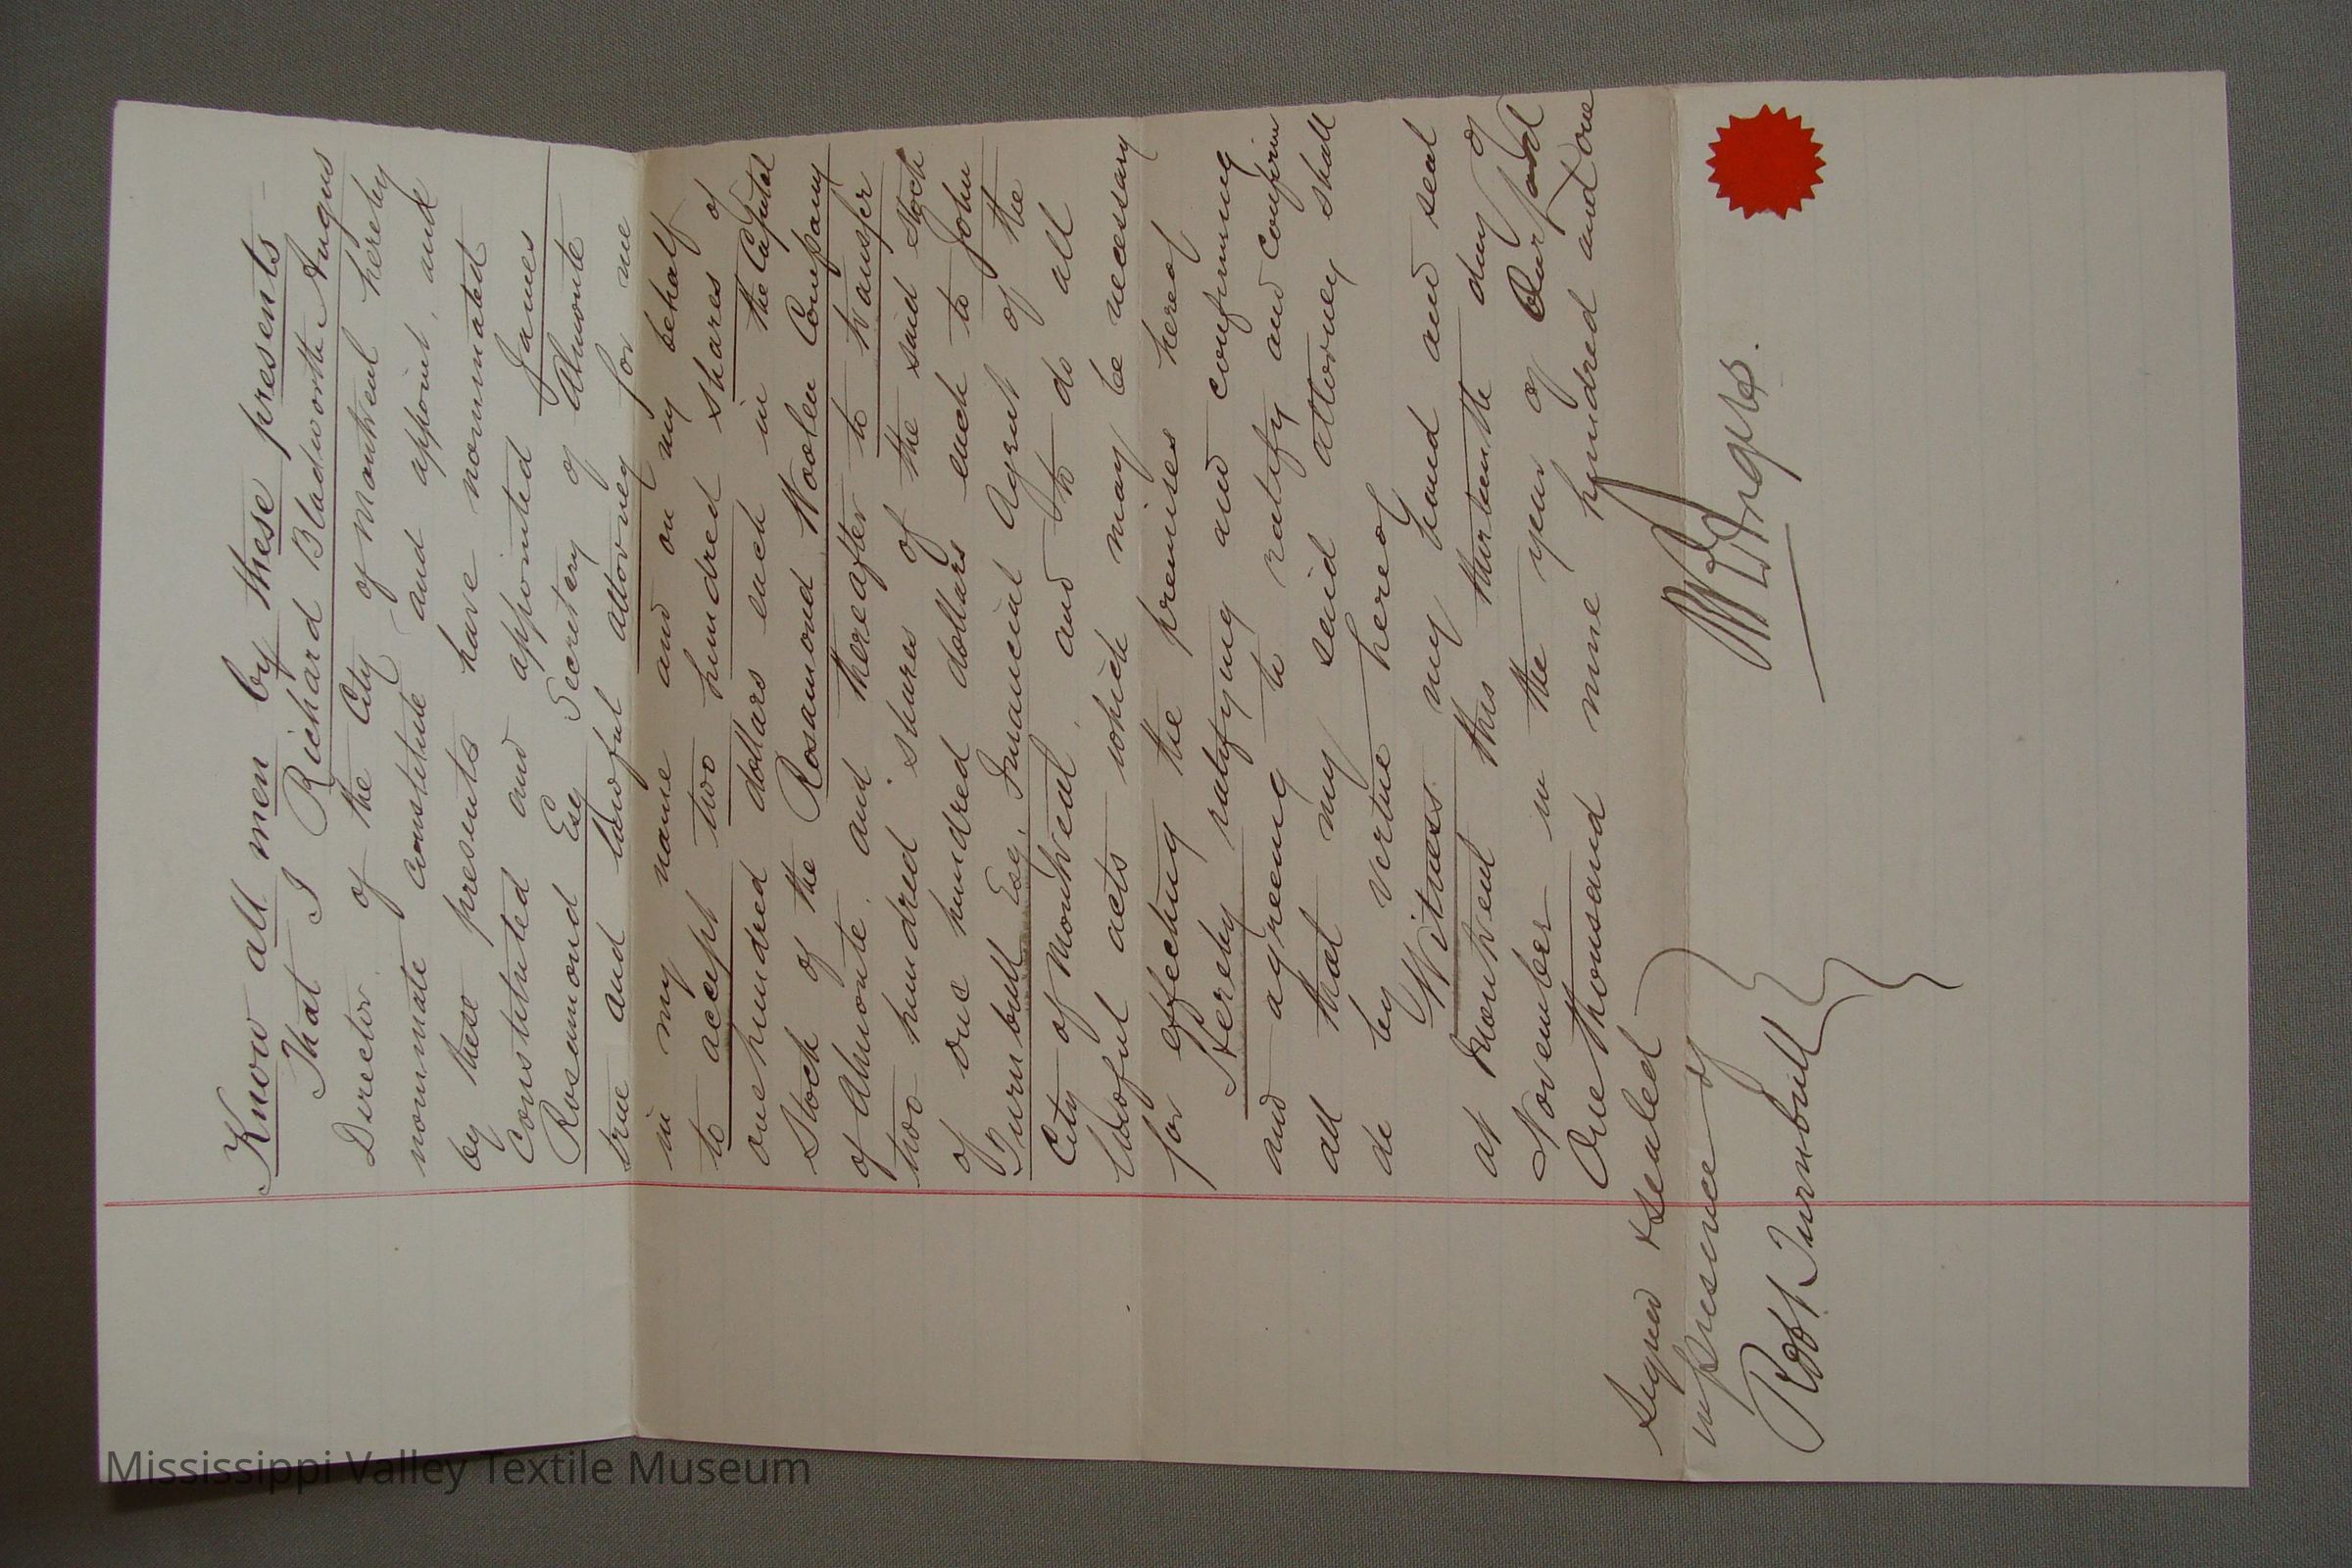 Know all men by these presents
That I Richard Bladworth Angus
Director of the City of Montreal hereby
nominate constitute and appoint, and
by these presents have nominated
constituted and appointed James
Rosamond Esq Secretary of Almonte
true and lawful attorney for me
in my name and on my behalf
to accept two hundred shares of
one hundred dollars each in the Capital
Stock of the Rosamond Woolen Company
of Almonte, and thereafter to transfer
two hundred shares of the said Stock
of one hundred dollars each to John
Turnbull Esq, Financial Agent of the
City of Montreal, and to do all
lawful acts which may be necessary
for effecting the premises hereof
Hereby ratifying and confirming
and agreeing to ratify and confirm
all that my said attorney shall
do by virtue hereof
Witness my hand and seal
at Montreal this thirteenth day of
November in the year of Our Lord
One thousand nine hundred and one
Signed & sealed
in presence of
Robt Turnbull
RB Angus.
Mississippi Valley Textile Museum